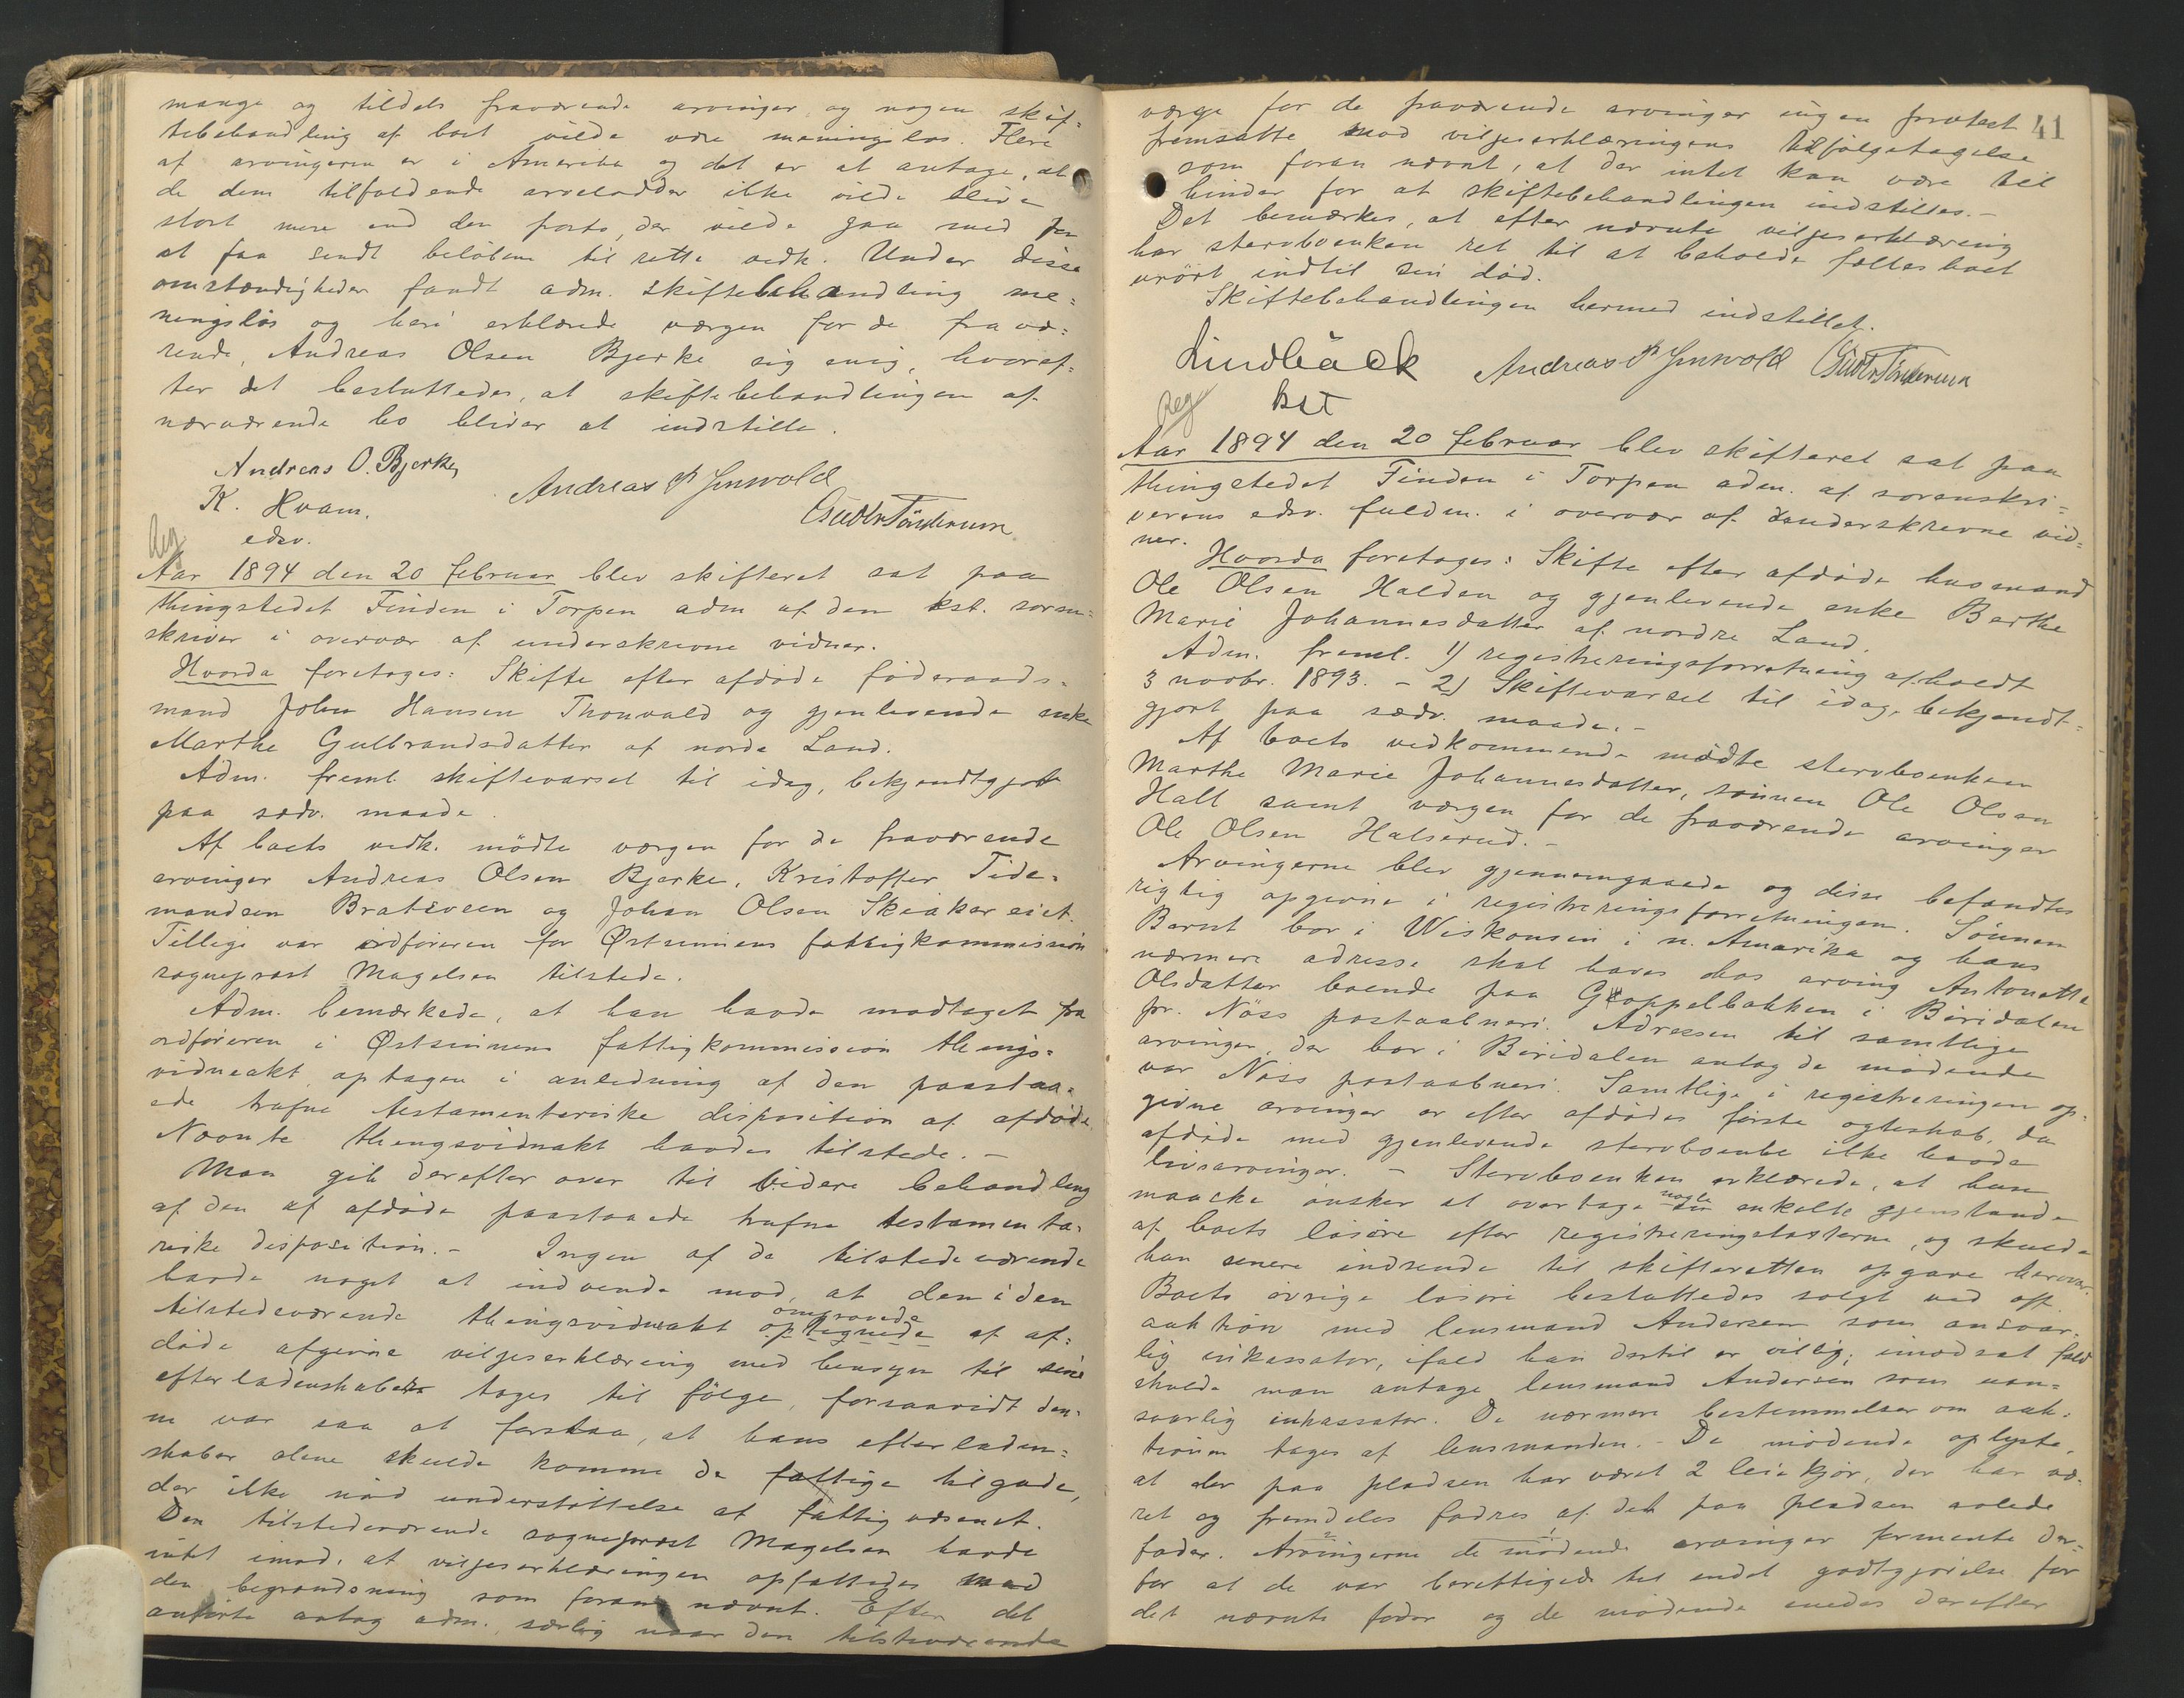 mange og tildels fraværende arvinger, og nogen skif-
tebehandling af boet vilde være meningsløs. Flere
af arvingerne er i Amerika og det er at antage, at
de dem tilfaldende arvelodder ikke vilde blive
stort mere end den porto, der vilde gaa med for
at faa sendt beløbene til rette vedk. Under disse
omstændigheder fandt adm. skiftebehandling me-
ningsløs og heri erklærede værgen for de fravæ-
rende, Andreas Olsen Bjerke sig enig, hvoref-
ter det besluttedes, at skiftebehandlingen af
nærværende bo bliver at indstille.
Andreas O. Bjerke,
K. Hvam.
edsv.
Andreas Jenswold
Reg
Aar 1894 den 20 februar blev skifteret sat paa
thingstedet Finden i Torpen adm af den kst. soren-
skriver i overvær af underskrevne vidner.
Hvorda foretoges: Skifte efter afdøde føderaads-
mand John Hansen Thonvald og gjenlevende enke
Marthe Gulbrandsdatter af nordre Land.
Adm. freml. skiftevarsel til idag, bekjendtgjort
paa sædv. maade.
Af boets vedk. mødte værgen for de fraværende
arvinger Andreas Olsen Bjerke, Kristoffer Tide-
mandsen Bratsveen og Johan Olsen Skiaker eiet.
Tillige var ordføreren for Østsinnens fattigkommission
sogneprest Magelsen tilstede.
Adm. bemærkede, at han havde modtaget fra
ordføreren i Østsinnens fattigkommission things-
vidneakt, optagen i anledning af den paastaa-
ede trufne testamentariske disposition af afdøde.
Nævnte thingsvidneakt havdes tilstede. -
Man gik derefter over til videre behandling
af den af afdøde paastaaede trufne testamenta-
riske disposition. - Ingen af de tilstedeværende
havde noget at indvende mod, at den i den
tilstedeværende thingsvidneakt optegnede af af-
døde afgivne viljeserklæring med hensyn til sine
efterladenskaber tages til følge, forsaavidt den-
ne var saa at forstaa, at hans efterladen-
skaber alene skulde komme de fattige tilgode,
der ikke nød understøttelse af fattigvæsenet.
Den tilstedeværende sogneprest Magelsen havde
intet imod, at viljeserklæringen opfattedes med
den begrændsning som foran nævnt. Efter det
anførte antog adm., særlig naar den tilstedeværende
41
værge for de fraværende arvinger ingen protest
fremsatte mod viljeserklæringens tilfølgetagelse
som foran nævnt, at der intet kan være til
hinder for at skiftebehandlingen indstilles. -
Det bemærkes, at efter nævnte viljeserklæring
har stervboenken ret til at beholde fællesboet
urørt indtil sin død.
Skiftebehandlingen hermed indstillet.
Lindbäck
kst
Andreas Jenswold
Reg
Aar 1894 den 20 februar blev skifteret sat paa
thingstedet Finden i Torpen adm. af sorenskri-
verens edsv. fuldm. i overvær af underskrevne vid-
ner.
Hvorda foretoges: Skifte efter afdøde husmand
Ole Olsen Halden og gjenlevende enke Berthe
Marie Johannesdatter af nordre Land.
Adm. freml. 1) registreringsforretning afholdt
3 novbr. 1893. - 2) Skiftevarsel til idag, bekjendt-
gjort paa sædv. maade. -
Af boets vedkommende mødte stervboenken
Marthe Marie Johannesdatter, sønnen Ole Olsen
Hall samt værgen for de fraværende arvinger
Ole Olsen Halserud. -
Arvingerne blev gjennemgaaede og disse befandtes
rigtig opgivne i registreringsforretningen. Sønnen
Bernt bor i Wiskonsin i n. Amerika og hans
nærmere adresse skal haves hos arving Antonette
Olsdatter boende paa Goppelbakken i Biridalen
pr. Näss postaabneri. Adressen til samtlige
arvinger, der bor i Biridalen antog de mødende
var Näss postaabneri. Samtlige i registreringen op-
givne arvinger er efter afdødes første egteskab, da
afdøde med gjenlevende stervboenke ikke havde
livsarvinger. - Stervboenken erklærede, at hun
maaske ønsker at overtage nogle enkelte gjenstande
af boets løsøre efter registreringstaxterne, og skulde
hun senere indsende til skifteretten opgave herover.
Boets øvrige løsøre besluttedes solgt ved off.
auktion med lensmand Andersen som ansvar-
lig inkassator, ifald han dertil er villig; imodsat fald
skulde man antage lensmand Andersen som uan-
svarlig inkassator. De nærmere bestemmelser om auk-
tionen tages af lensmanden. - De mødende oplyste,
at der paa pladsen har været 2 leiekjør, der har væ-
ret og fremdeles fodres af det paa pladsen avlede
foder. Arvingerne de mødende arvinger formente der-
for at de var berettigede til endel godtgjørelse for
det nævnte foder og de mødende enedes derefter